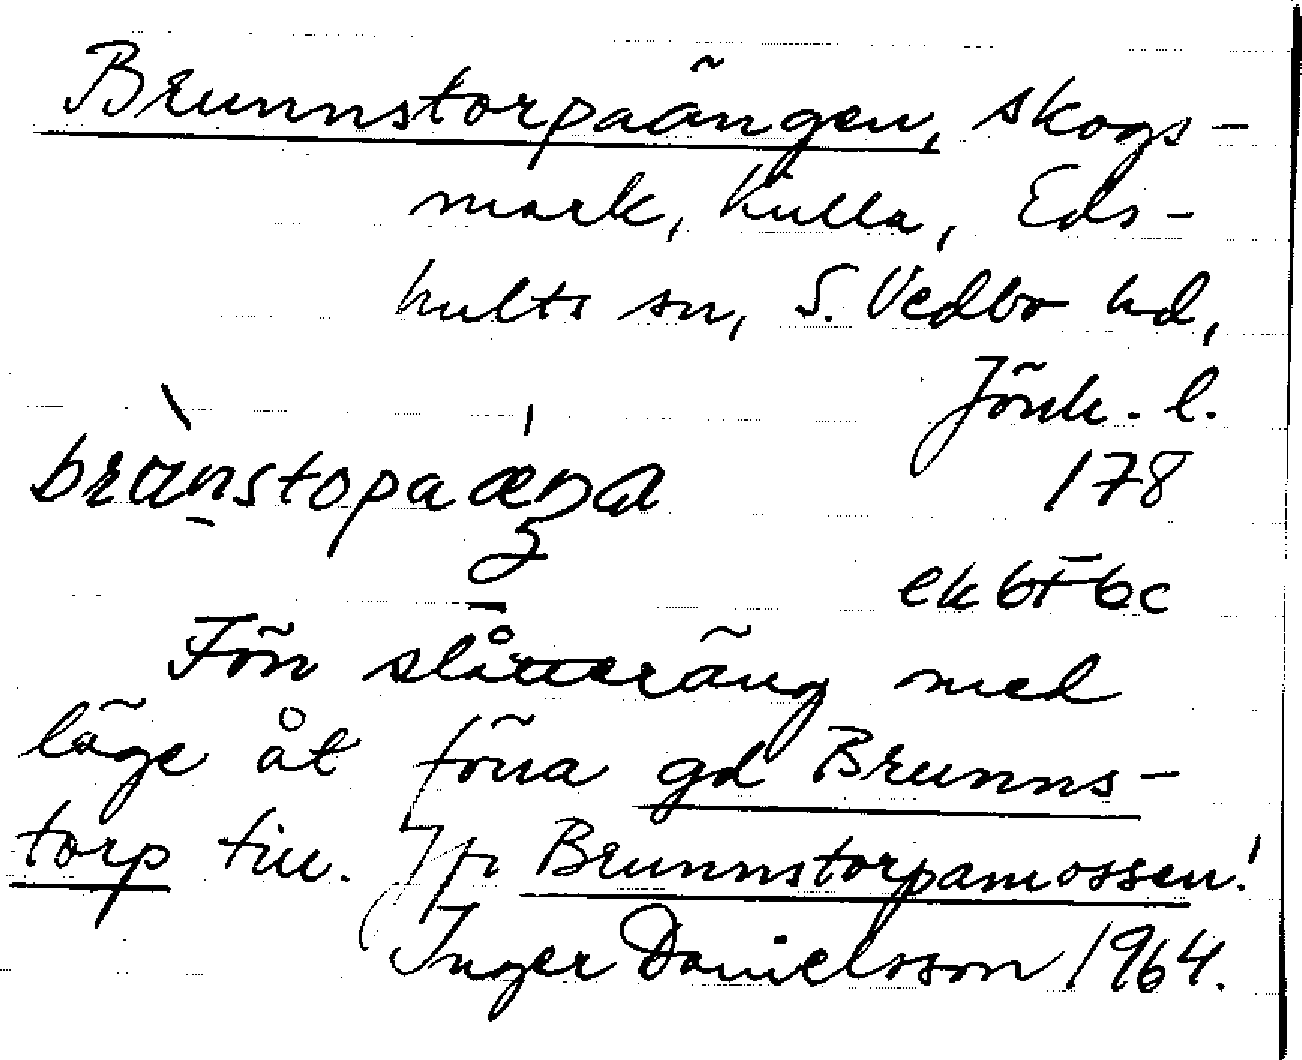 Brunnstorpaängen, skogs-
mark, Kulla, Eds-
hults sn, S. Vedbo hd,
Jönk. l.
178
ek bf bc
Förr slåtteräng med
läge åt förra gd Brunns-
torp till. Jfr Brunnstorpamossen!
Inger Danielsson 1964.